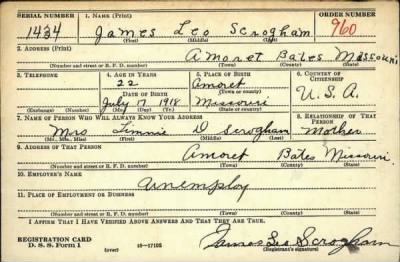 SERIAL NUMBER 1. NAME (Print) ORDER NUMBER
1434 James Leo Scrogham 960
(First) (Middle) (Last)
2. ADDRESS (Print)
Amoret Bates Missouri
(Number and street or R. F. D. number) (Town) (County) (State)
3. TELEPHONE 4. AGE IN YEARS 5. PLACE OF BIRTH 6. COUNTRY OF CITIZENSHIP
22 Amoret
DATE OF BIRTH (Town or county)
July 17 1918 Missouri U.S.A.
(Exchange) (Number) (Mo.) (Day) (Yr.) (State or country)
7. NAME OF PERSON WHO WILL ALWAYS KNOW YOUR ADDRESS 8. RELATIONSHIP OF THAT PERSON
Mrs Timmie D Scrogham Mother
(Mr., Mrs., Miss) (First) (Middle) (Last)
9. ADDRESS OF THAT PERSON
Amoret Bates Missouri
(Number and street or R. F. D. number) (Town) (County) (State)
10. EMPLOYER'S NAME
unemploy
11. PLACE OF EMPLOYMENT OR BUSINESS
(Number and street or R. F. D. number) (Town) (County) (State)
I AFFIRM THAT I HAVE VERIFIED ABOVE ANSWERS AND THAT THEY ARE TRUE.
REGISTRATION CARD James Leo Scrogham
D. S. S. Form 1 (over) 16—17105 (Registrant's signature)